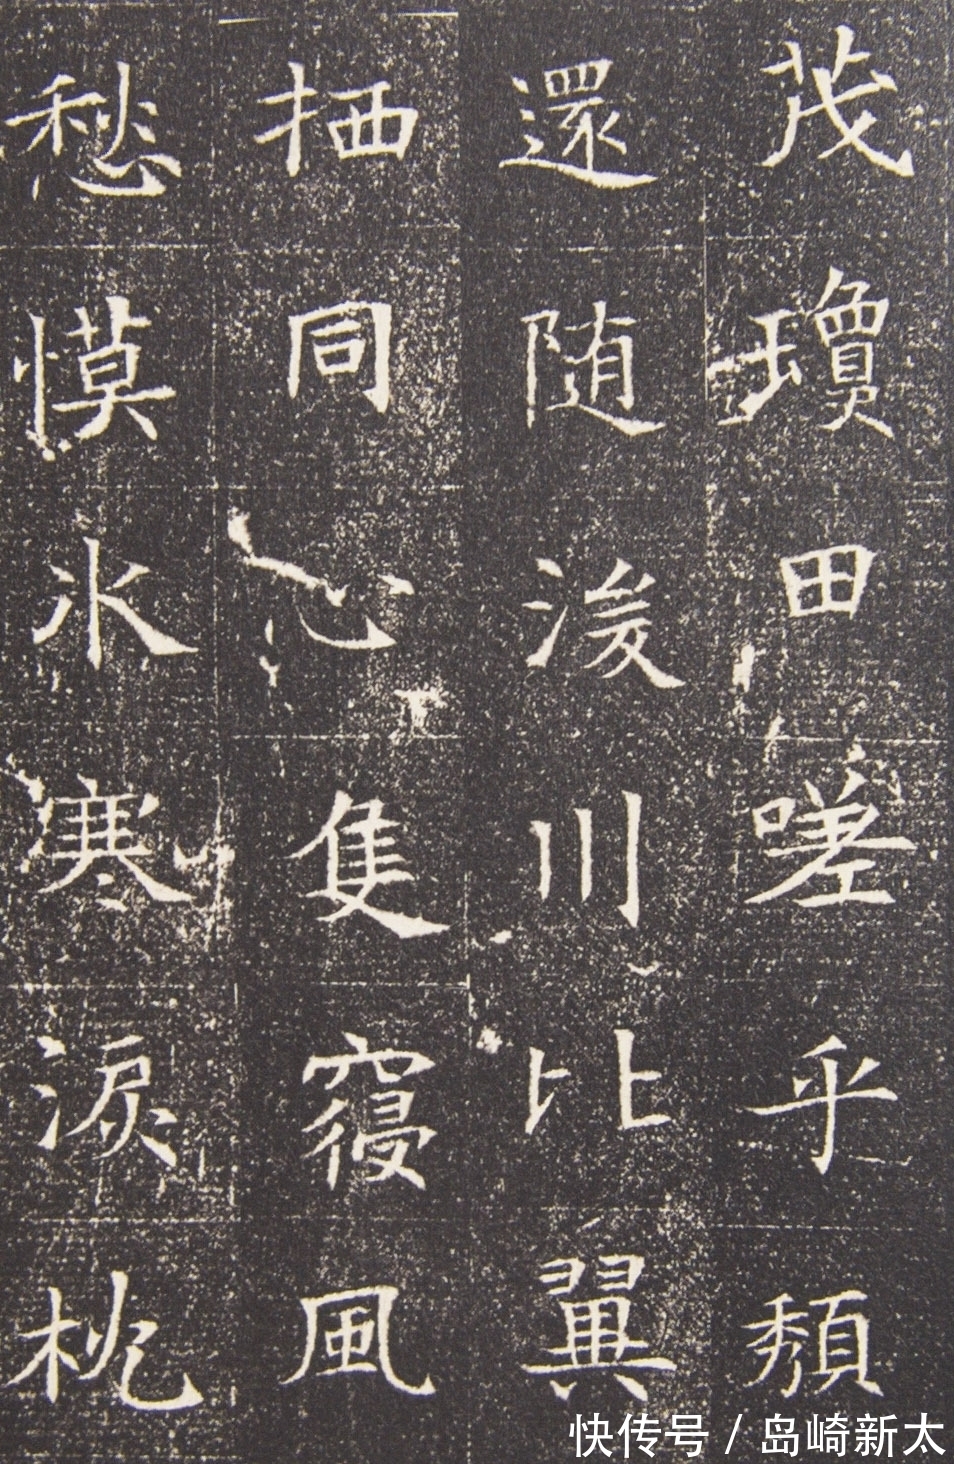 茂瓊田嗟乎頽
還随浚川比翼
栖同心隻寢風
愁慔水寒淚枕
快传号 / 岛崎新太